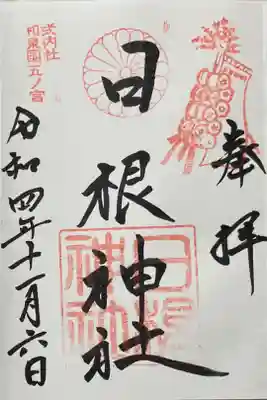 奉拝
日根神社
日根
神社
式内社
和泉国五ノ宮
令和四年十一月六日